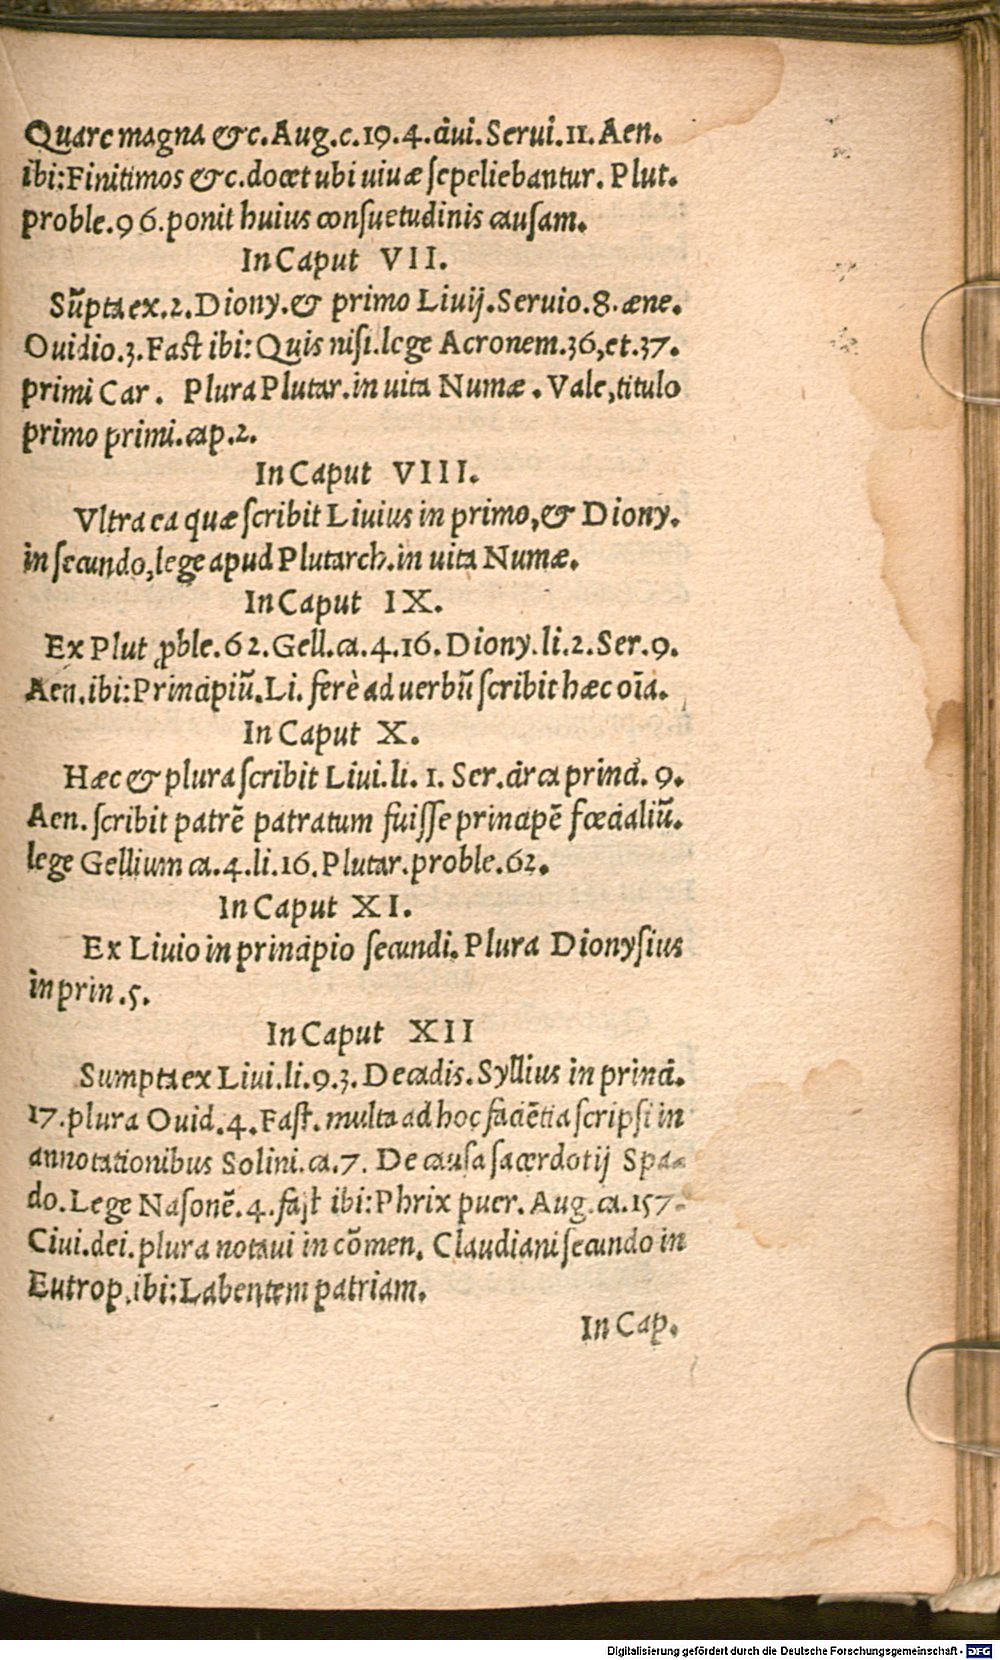 Quare magna &c. Aug.c.19.4.ciui.Serui.11.Aen.
ibi:Finitimos &c.docet ubi uiuæ ſepeliebantur. Plut.
proble.96.ponit huius conſuetudinis cauſam.
In Caput VII.
Sūpta ex.2.Diony.& primo Liuij.Seruio.8.æne.
Ouidio.3.Faſt ibi:Quis niſi.lege Acronem.36,et.37.
primi Car. Plura Plutar.in uita Numæ. Vale,titulo
primo primi.cap.2.
In Caput VIII.
Vltra ea quæ ſcribit Liuius in primo,& Diony.
in ſecundo,lege apud Plutarch.in uita Numæ.
In Caput IX.
Ex Plut ꝓble.62.Gell.ca.4.16.Diony.li.2.Ser.9.
Aen.ibi:Principiū.Li. ferè ad uerbū ſcribit hæc oīa.
In Caput X.
Hæc & plura ſcribit Liui.li. 1. Ser.circa princi. 9.
Aen. ſcribit patrē patratum fuiſſe principē fœcialiū.
lege Gellium ca.4.li.16.Plutar.proble.62.
In Caput XI.
Ex Liuio in principio ſecundi.Plura Dionyſius
in prin.5.
In Caput XII
Sumpta ex Liui.li.9.3.Decadis.Syllius in princi.
17.plura Ouid.4.Faſt.multa ad hoc faciētia ſcripſi in
annotationibus Solini.ca.7. De cauſa ſacerdotij Spa-
do.Lege Naſonē.4.faſt ibi:Phrix puer. Aug.ca.157.
Ciui.dei.plura notaui in cōmen. Claudiani ſecundo in
Eutrop.ibi:Labentem patriam.
In Cap.
Digitalisierung gefördert durch die Deutsche Forschungsgemeinschaft - DFG